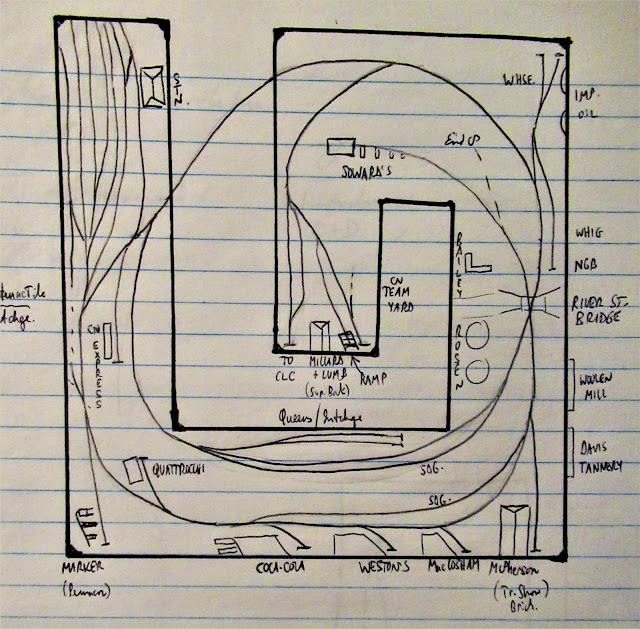 STN.
WHSE.
IMP.
OIL
End of
SOWARD'S
WHIG
NGB
BAILEY
CN
TEAM
YARD
RIVER ST.
BRIDGE
CN EXPRESS
ROSEN
TO
CLC
MILLARD
+ LUMB
RAMP
WOOLEN
MILL
Queens/Intchge
DAVIS
TANNERY
SDG.
QUATTROCCHI
SDG.
MARKER
COCA-COLA
WESTON'S
MacCOSHAM
McPherson
(Tr. Show)
Brick.